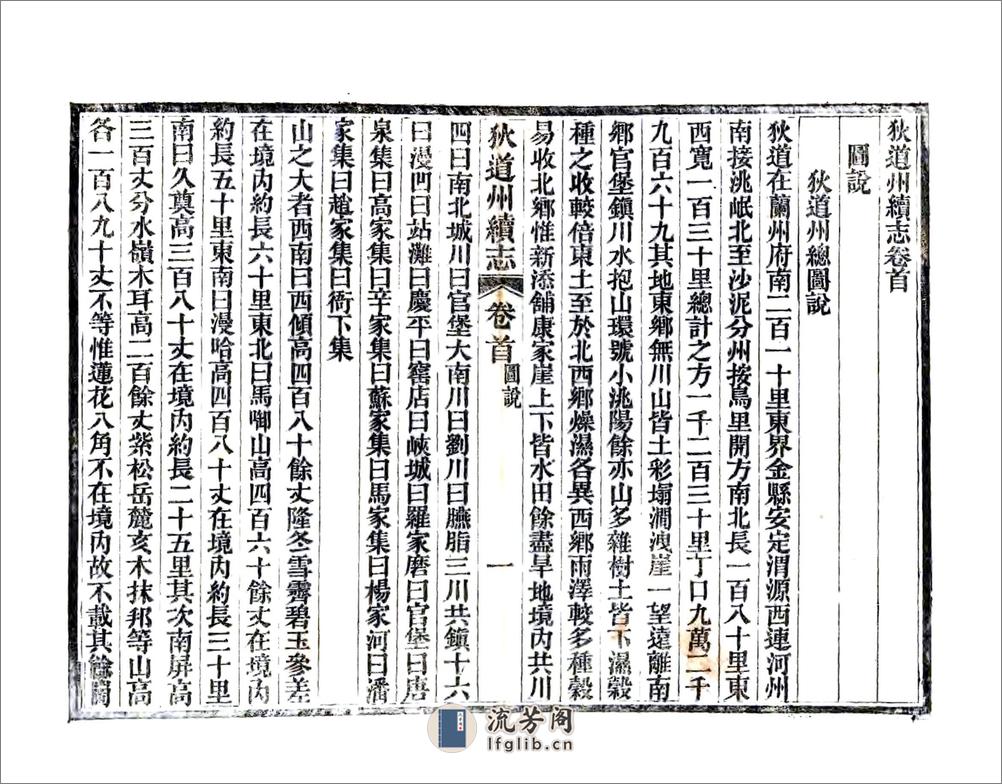 狄道州續志卷首
圖說
狄道州總圖說
狄道在蘭州府南二百一十里東界金縣安定渭源西連河州
南接洮岷北至沙泥分州按鳥里開方南北長一百八十里東
西寬一百三十里總計之方一千二百三十里丁口九萬二千
九百六十九其地東鄉無川山皆土彩塌澗洩崖一望遠離南
鄉官堡鎮川水抱山環號小洮陽餘亦山多雜樹土皆下濕穀
種之收較倍東土至於北西鄉燥濕各異西鄉雨澤較多種穀
易收北鄉惟新添舖康家崖上下皆水田餘盡旱地境內共川
狄道州續志 卷首 圖說 一
四曰南北城川曰官堡大南川曰劉川曰臙脂三川共鎮十六
曰漫凹曰站灘曰慶平曰窰店曰峽城曰羅家磨曰官堡曰唐
泉集曰高家集曰辛家集曰蘇家集曰馬家集曰楊家河曰潘
家集曰趙家集曰衙下集
山之大者西南曰西傾高四百八十餘丈隆冬雪霽碧玉參差
在境內約長六十里東北曰馬啣山高四百六十餘丈在境內
約長五十里東南曰漫哈高四百八十丈在境內約長三十里
南曰久奠高三百八十丈在境內約長二十五里其次南屏高
三百丈分水嶺木耳高二百餘丈紫松岳麓亥木抹邦等山高
各一百八九十丈不等惟蓮花八角不在境內故不載其餘
流芳阁
lfglib.cn